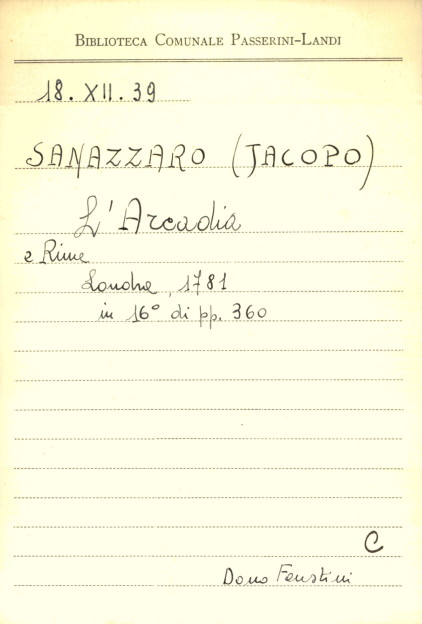 BIBLIOTECA COMUNALE PASSERINI-LANDI
18. XII. 39
SANAZZARO (JACOPO)
L'Arcadia
e Rime
Londra, 1781
in 16° di pp. 360
C
Dono Faustini